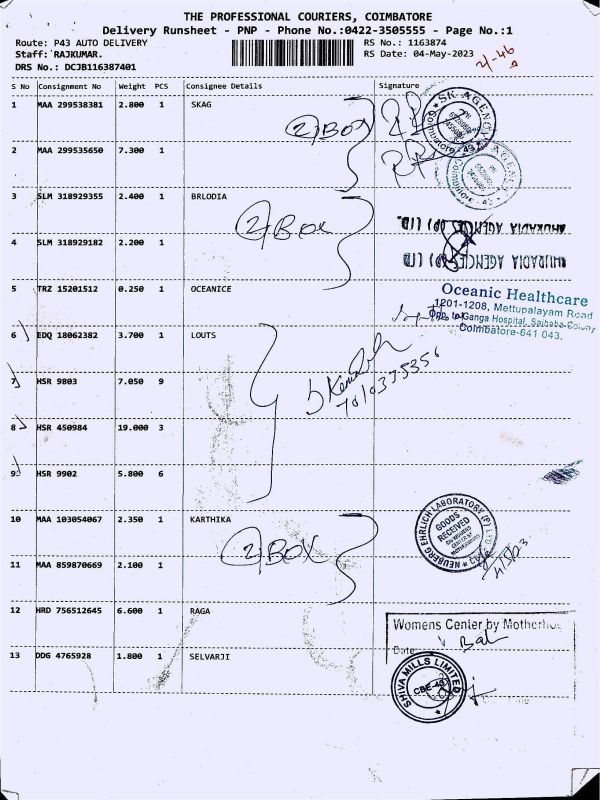 THE PROFESSIONAL COURIERS, COIMBATORE
Delivery Runsheet - PNP - Phone No.:0422-3505555 - Page No.:1
Route: P43 AUTO DELIVERY
RS No.: 1163874
Staff: RAJKUMAR.
RS Date: 04-May-2023
DRS No.: DCJB116387401
S No Consignment No Weight PCS Consignee Details Signature
1 MAA 299538381 2.800 1 SKAG
2 Box
SK AGENCY
Coimbatore - 43
2 MAA 299535650 7.300 1
3 SLM 318929355 2.400 1 BRLODIA
2 Box
4 SLM 318929182 2.200 1
5 TRZ 15201512 0.250 1 OCEANICE
Oceanic Healthcare
1201-1208, Mettupalayam Road
Opp. to Ganga Hospital, Saibaba Colony
Coimbatore-641 043.
6 EDQ 18062382 3.700 1 LOUTS
7 HSR 9803 7.050 9
8 HSR 450984 19.000 3
9 HSR 9902 5.800 6
10 MAA 103054067 2.350 1 KARTHIKA
2 BOX
NEUBERG EHRLICH LABORATORY (P) LTD
GOODS
RECEIVED
4/5/23
11 MAA 859870669 2.100 1
12 HRD 756512645 6.600 1 RAGA
Womens Center by Motherhood
Date
13 DDG 4765928 1.800 1 SELVARJI
SHIVA MILLS LIMITED
CBE-43